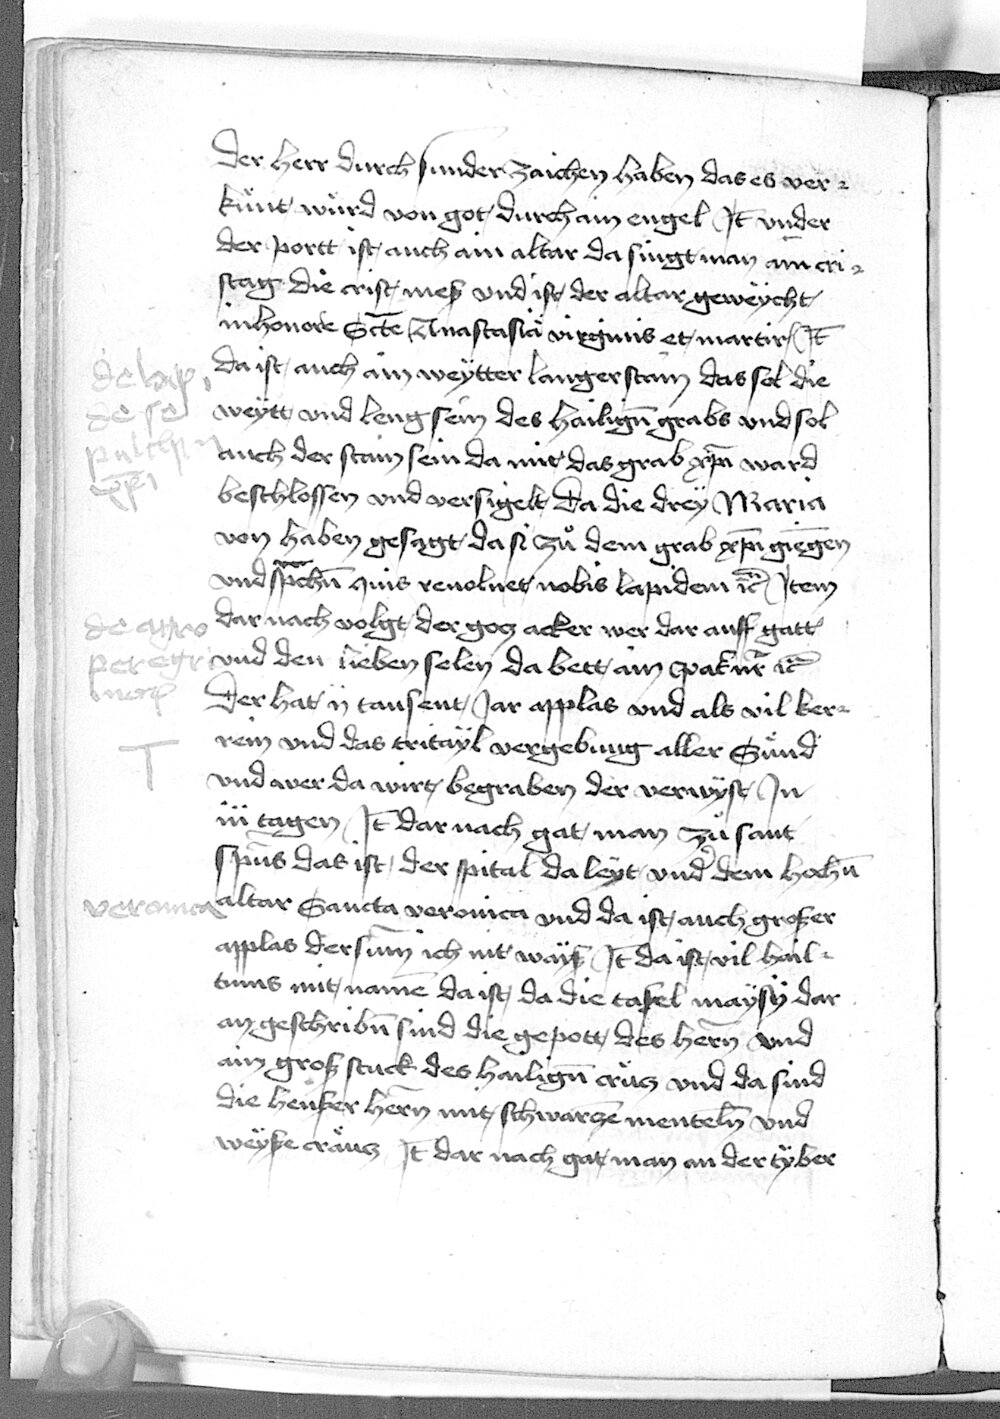 der herr durch sunder zaichen haben das es ver-
künt würd von got durch ain engel Jt̄ vnder
der portt ist auch ain altar da singt man am cri-
stag die crist meß vnd ist der altar geweÿcht
in honore Sctē Anastasia virginis et martir Jt̄
da ist auch ain weÿtter langer stain das sol die
de lap.
weÿtt vnd leng sein des hailigñ grabs vnd sol
de se
auch der stain sein da mit das grab xp̄i ward
pulchr
beschlossen vnd versigelt Da die dreÿ Maria
xp̄i
von haben gesagt da si zů dem grab xp̄i giengen
vnd sprchñ quis reuoluet nobis lapidem ꝛc̄ Item
dar nach volgt der gocz acker wer dar auff gatt
de agro
vnd den lieben selen da bett ain pat nr̄ ꝛc̄
peregri
Der hat ij tausent Jar applas vnd als vil ker-
norꝝ
rein vnd das tritaÿl vergebung aller Sünd
T
vnd wer da wirt begraben der verwÿst Jn
iij tagen Jt̄ dar nach gat man zů sant
Spūs das ist der spital da leÿt vnd' dem hochñ
altar Sancta veronica vnd da ist auch großer
veronica
applas der sum̄ ich nit waÿß Jt̄ da ist vil hail-
tums mit namē da ist da die tafel maÿsÿ dar
an geschribñ sind die gepott des herñ vnd
ain groß stuck des hailigñ crücz vnd da sind
die herñ mit schwarczē mentelñ vnd
weÿße cräucz Jt̄ dar nach gat man an der tÿber